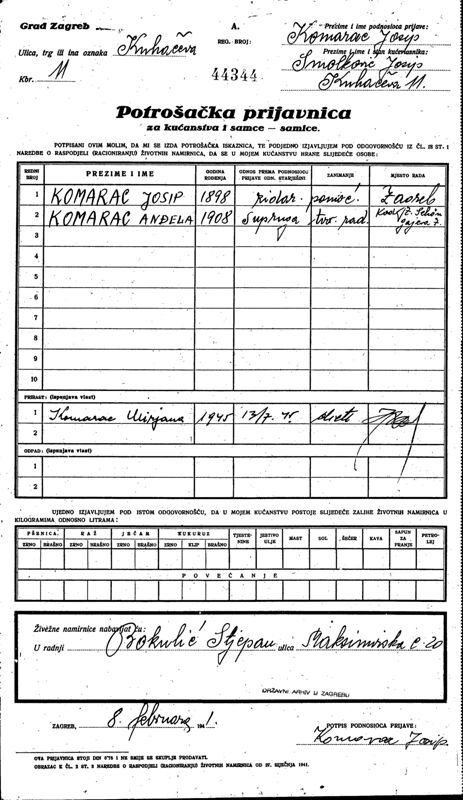 Grad Zagreb
Ulica, trg ili ina oznaka Kuhačeva
Kbr. 11
A.
REG. BROJ:
44344
Prezime i ime podnosioca prijave:
Komarac Josip
Prezime i ime kućevlasnika:
Smolković Josip
Kuhačeva 11.
Potrošačka prijavnica
za kućanstva i samce — samice.
POTPISANI OVIM MOLIM, DA MI SE IZDA POTROŠAČKA ISKAZNICA, TE PODJEDNO IZJAVLJUJEM POD ODGOVORNOŠĆU IZ ČL. 18 ST. 1
NAREDBE O RASPODJELI (RACIONIRANJU) ŽIVOTNIH NAMIRNICA, DA SE U MOJEM KUĆANSTVU HRANE SLIJEDEĆE OSOBE:
REDNI BROJ PREZIME I IME GODINA ROĐENJA ODNOS PREMA PODNOSIOCU PRIJAVE ODN. STARJEŠINI ZANIMANJE MJESTO RADA
1 KOMARAC JOSIP 1898 pomoć. Zagreb
2 KOMARAC ANĐELA 1908 supruga tvo. rad.
3
4
5
6
7
8
9
10
PRIRAST: (ispunjava vlast)
1 Komarac Mirjana 1945 13/7. 45.
2
OTPAD: (ispunjava vlast)
1
2
UJEDNO IZJAVLJUJEM POD ISTOM ODGOVORNOŠĆU, DA U MOJEM KUĆANSTVU POSTOJE SLIJEDEĆE ZALIHE ŽIVOTNIH NAMIRNICA U
KILOGRAMIMA ODNOSNO LITRAMA:
PŠENICA RAŽ JEČAM KUKURUZ TJESTENINE JESTIVO ULJE MAST SOL ŠEĆER KAVA SAPUN ZA PRANJE PETROLEJ
ZRNO BRAŠNO ZRNO BRAŠNO ZRNO BRAŠNO ZRNO KLIP BRAŠNO
POVEĆANJE
Živežne namirnice nabavljat ću:
U radnji Bokulić Stjepan ulica Maksimirska c. 20
DRŽAVNI ARHIV U ZAGREBU
ZAGREB, 8. februara 1941.
POTPIS PODNOSIOCA PRIJAVE:
Komarac Josip.
OVA PRIJAVNICA STOJI DIN 0'75 I NE SMIJE SE SKUPLJE PRODAVATI.
OBRAZAC K ČL. 2 ST. 2 NAREDBE O RASPODJELI (RACIONIRANJU) ŽIVOTNIH NAMIRNICA OD 27. SIJEČNJA 1941.